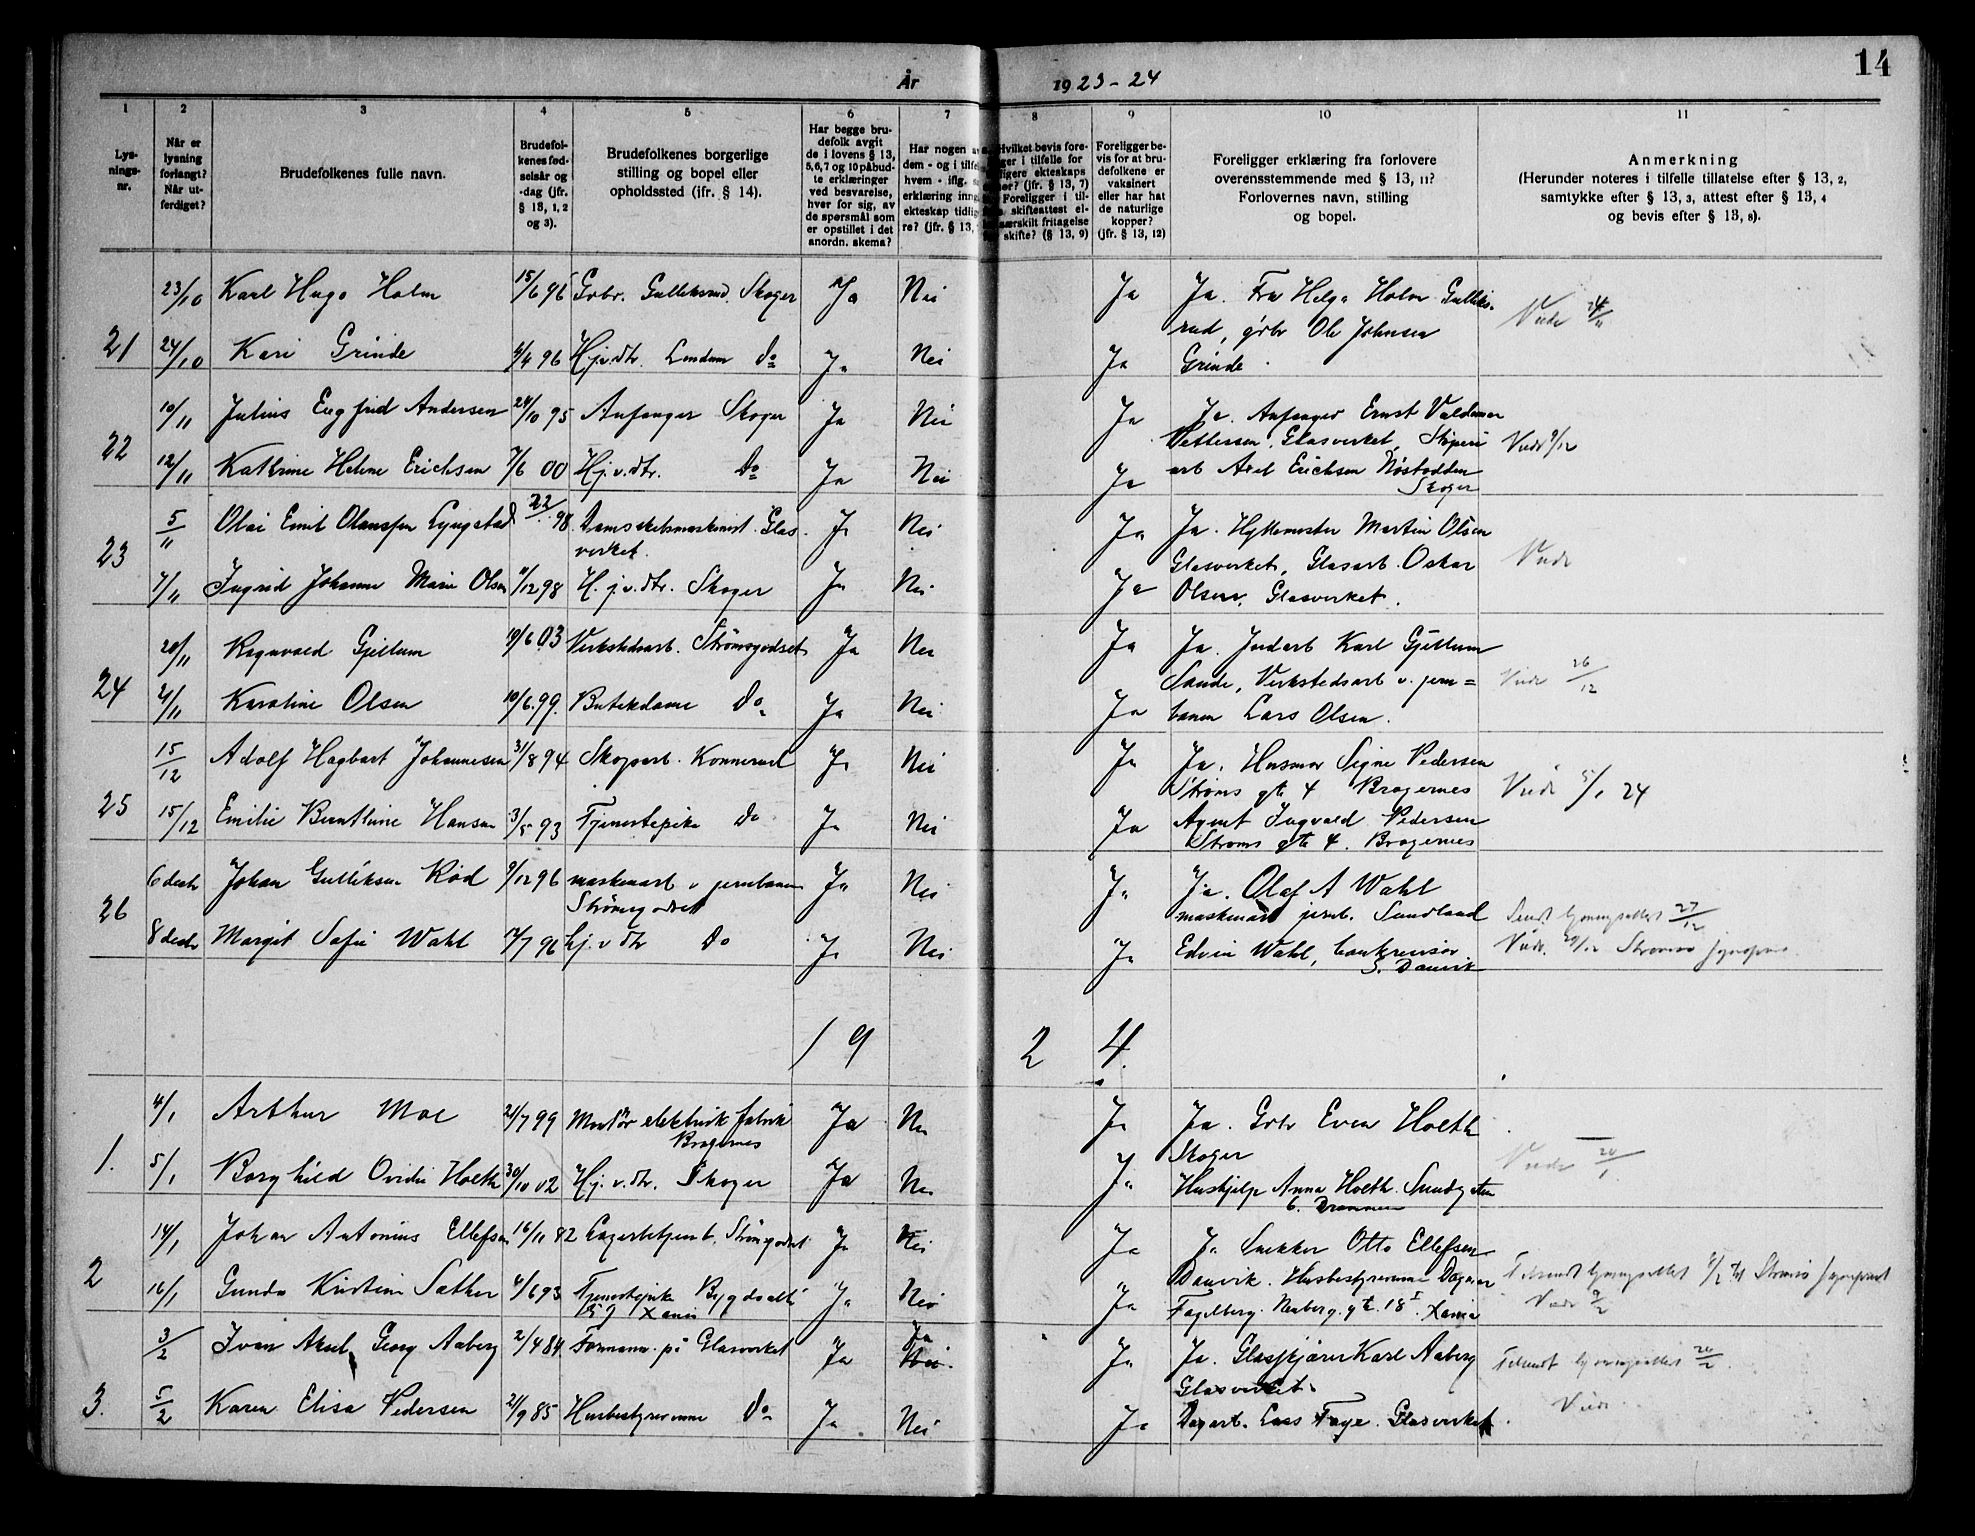 År 1923-24
14
1 2 3 4 5 6 7 8 9 10 11
Lys-
nings-
nr.
Når er
lysning
forlangt?
Når ut-
ferdiget?
Brudefolkenes fulle navn.
Brudefol-
kenes fød-
selsår og
-dag (jfr.
§ 13, 1, 2
og 3).
Brudefolkenes borgerlige
stilling og bopel eller
opholdssted (ifr. § 14).
Har begge bru-
defolk avgit
de i lovens § 13,
5,6,7 og 10 påbud-
te erklæringer
ved besvarelse,
hver for sig, av
de spørsmål som
er opstillet i det
anordn. skema?
Har nogen
dem - og i tilfe
hvem - iflg.
erklæring inng
ekteskap tidlig
re? (jfr. § 13,
Hvilket bevis fore-
ger i tilfelle for
ligere ekteskaps
? (jfr. § 13, 7)
Foreligger i til-
skifteattest el-
særskilt fritagelse
skifte? (§ 13, 9)
Foreligger be-
vis for at bru-
defolkene er
vaksinert
eller har hat
de naturlige
kopper?
(jfr. § 13, 12)
Foreligger erklæring fra forlovere
overensstemmende med § 13, 11?
Forlovernes navn, stilling
og bopel.
Anmerkning
(Herunder noteres i tilfelle tillatelse efter § 13, 2,
samtykke efter § 13, 3, attest efter § 13, 4
og bevis efter § 13, 8).
23/10 Karl Hugo Holm 15/6 96 Grbr. Gulliksrud Skoger Ja Nei Ja Ja. Fru Helga Holm Gulliks-
rud, grbr Ole Johnsen
Viede 24/11
21 24/10 Kari Grinde 4/4 96 Hj.v.dtr. Lendum do Ja Nei Ja Grinde.
10/11 Julius Engfrid Andersen 24/10 95 Anfanger Skoger Ja Nei Ja Ja. Anfanger Ernst Valdemar
Pettersen. Glasverket, Støperi
22 12/11 Kathrine Helene Erichsen 7/6 00 Hj.v.dtr. do Ja Nei Ja arb Axel Erichsen Nøstodden
Skoger
Viede 9/12
5/11 Olai Emil Olaussen Lyngstad 22/ 98. Damskibsmaskinist. Glas-
verket.
Ja Nei Ja Ja. Hyttemester Martin Olsen
Glasverket, Glasarb. Oskar
Viede
23 7/11 Ingrid Johanne Marie Olsen 11/12 98 H.j.v.dtr. Skoger Ja Nei Ja Olsen, Glasverket.
20/11 Ragnvald Gjellum 19/6 03 Verkstedsarb. Strömsgodset Ja Nei Ja Ja. Jordarb Karl Gjellum
Sande, Verkstedsarb v. jern=
Viede 26/12
24 21/11 Karoline Olsen 10/6.99. Butikdame do Ja Nei Ja banen Lars Olsen.
15/12 Adolf Hagbart Johannesen 31/8 94 Skogarb. Konnerud Ja Nei Ja Ja. Husmor Signe Pedersen
Ströms gt 4 Bragernes
Viede 5/1 24
25 15/12 Emilie Berntine Hansen 3/5 93 Tjenestepike do Ja Nei Ja Agent Ingvald Pedersen
Ströms gt 4. Bragernes
6 desbr Johan Gulliksen Rød 9/12 96 maskinarb v jernbanen
Strömsgodset
Ja Nei Ja Ja. Olaf A Wahl
maskinarb jernb. Sundland
Sendt lysningsattest 27/12
26 8 desbr Margit Sofie Wahl 4/7 96 hj. v dtr do Ja Nei Ja Edvin Wahl, bankrevisor
S. Danvik
Viede. 29/12 Strømsø
1 9 2 4.
4/1 Arthur Moe 21/7 99 Montör elektrisk fabrik
Bragernes
Ja Nei Ja Ja. Grbr Even Holth
Skoger
Viede 20/1
1. 5/1 Borghild Ovidie Holth 30/10 02 Hj.v.dtr. Skoger Ja Nei Ja Hushjelp Anna Holth. Sundgaten
6. Drammen
14/1 Johan Antonius Ellefsen 16/11 82 Lagerbetjent. Strömsgodset Ja Nei Ja Ja Snekker Otto Ellefsen
Danvik. Husbestyrerinne Dagmar
Tilsendt lysningsattest 4/2 til Strømsø
2 16/1 Gunda Kristine Sæther 4/6 93 Tjenestepike Bygdøallé
59 Xania
Ja Nei Ja Fagelberg. Neuberg. gt. 18 I. Xania
Viede 9/2
3/2 Ivan Aksel Georg Aaberg 2/4 84 Formann på Glasverket Ja Ja Nei. Ja Ja. Glasskjærer Karl Aaberg
Glasverket
Tilsendt lysningsattest 20/2.
3. 5/2 Karen Elisa Pedersen 21/9 85 Husbestyrerinne do Ja Nei Ja Dagarb. Lars Faye. Glasverket.
Viede